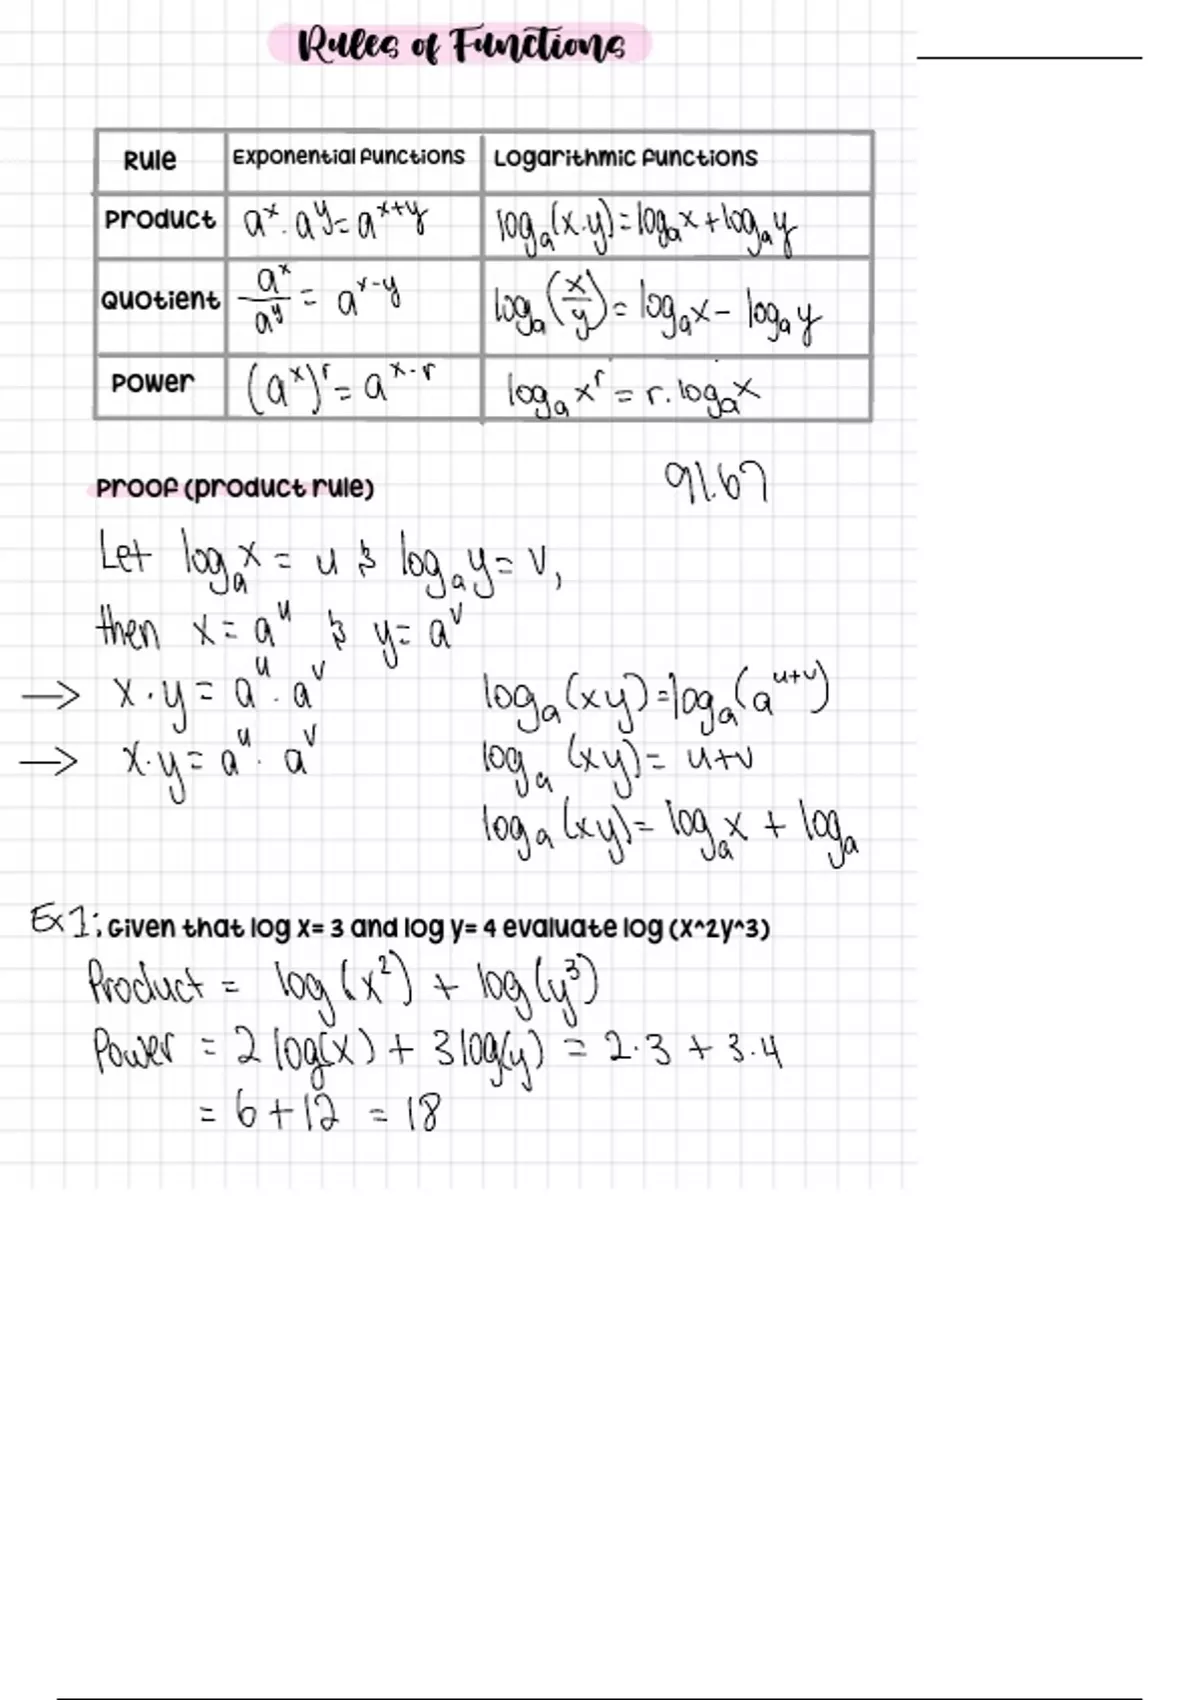 Rules of Functions
Rule Exponential Functions Logarithmic Functions
Product a^x · a^y = a^(x+y) log_a(x·y) = log_a x + log_a y
Quotient a^x / a^y = a^(x-y) log_a(x/y) = log_a x - log_a y
Power (a^x)^r = a^(x·r) log_a x^r = r · log_a x
Proof (product rule) 91.67
Let log_a x = u & log_a y = v,
then x = a^u & y = a^v
→ x·y = a^u · a^v
→ x·y = a^u · a^v
log_a(xy) = log_a(a^(u+v))
log_a(xy) = u+v
log_a(xy) = log_a x + log_a
Ex 1: Given that log x= 3 and log y= 4 evaluate log (x^2y^3)
Product = log(x²) + log(y³)
Power = 2 log(x) + 3 log(y) = 2·3 + 3·4
= 6 + 12 = 18